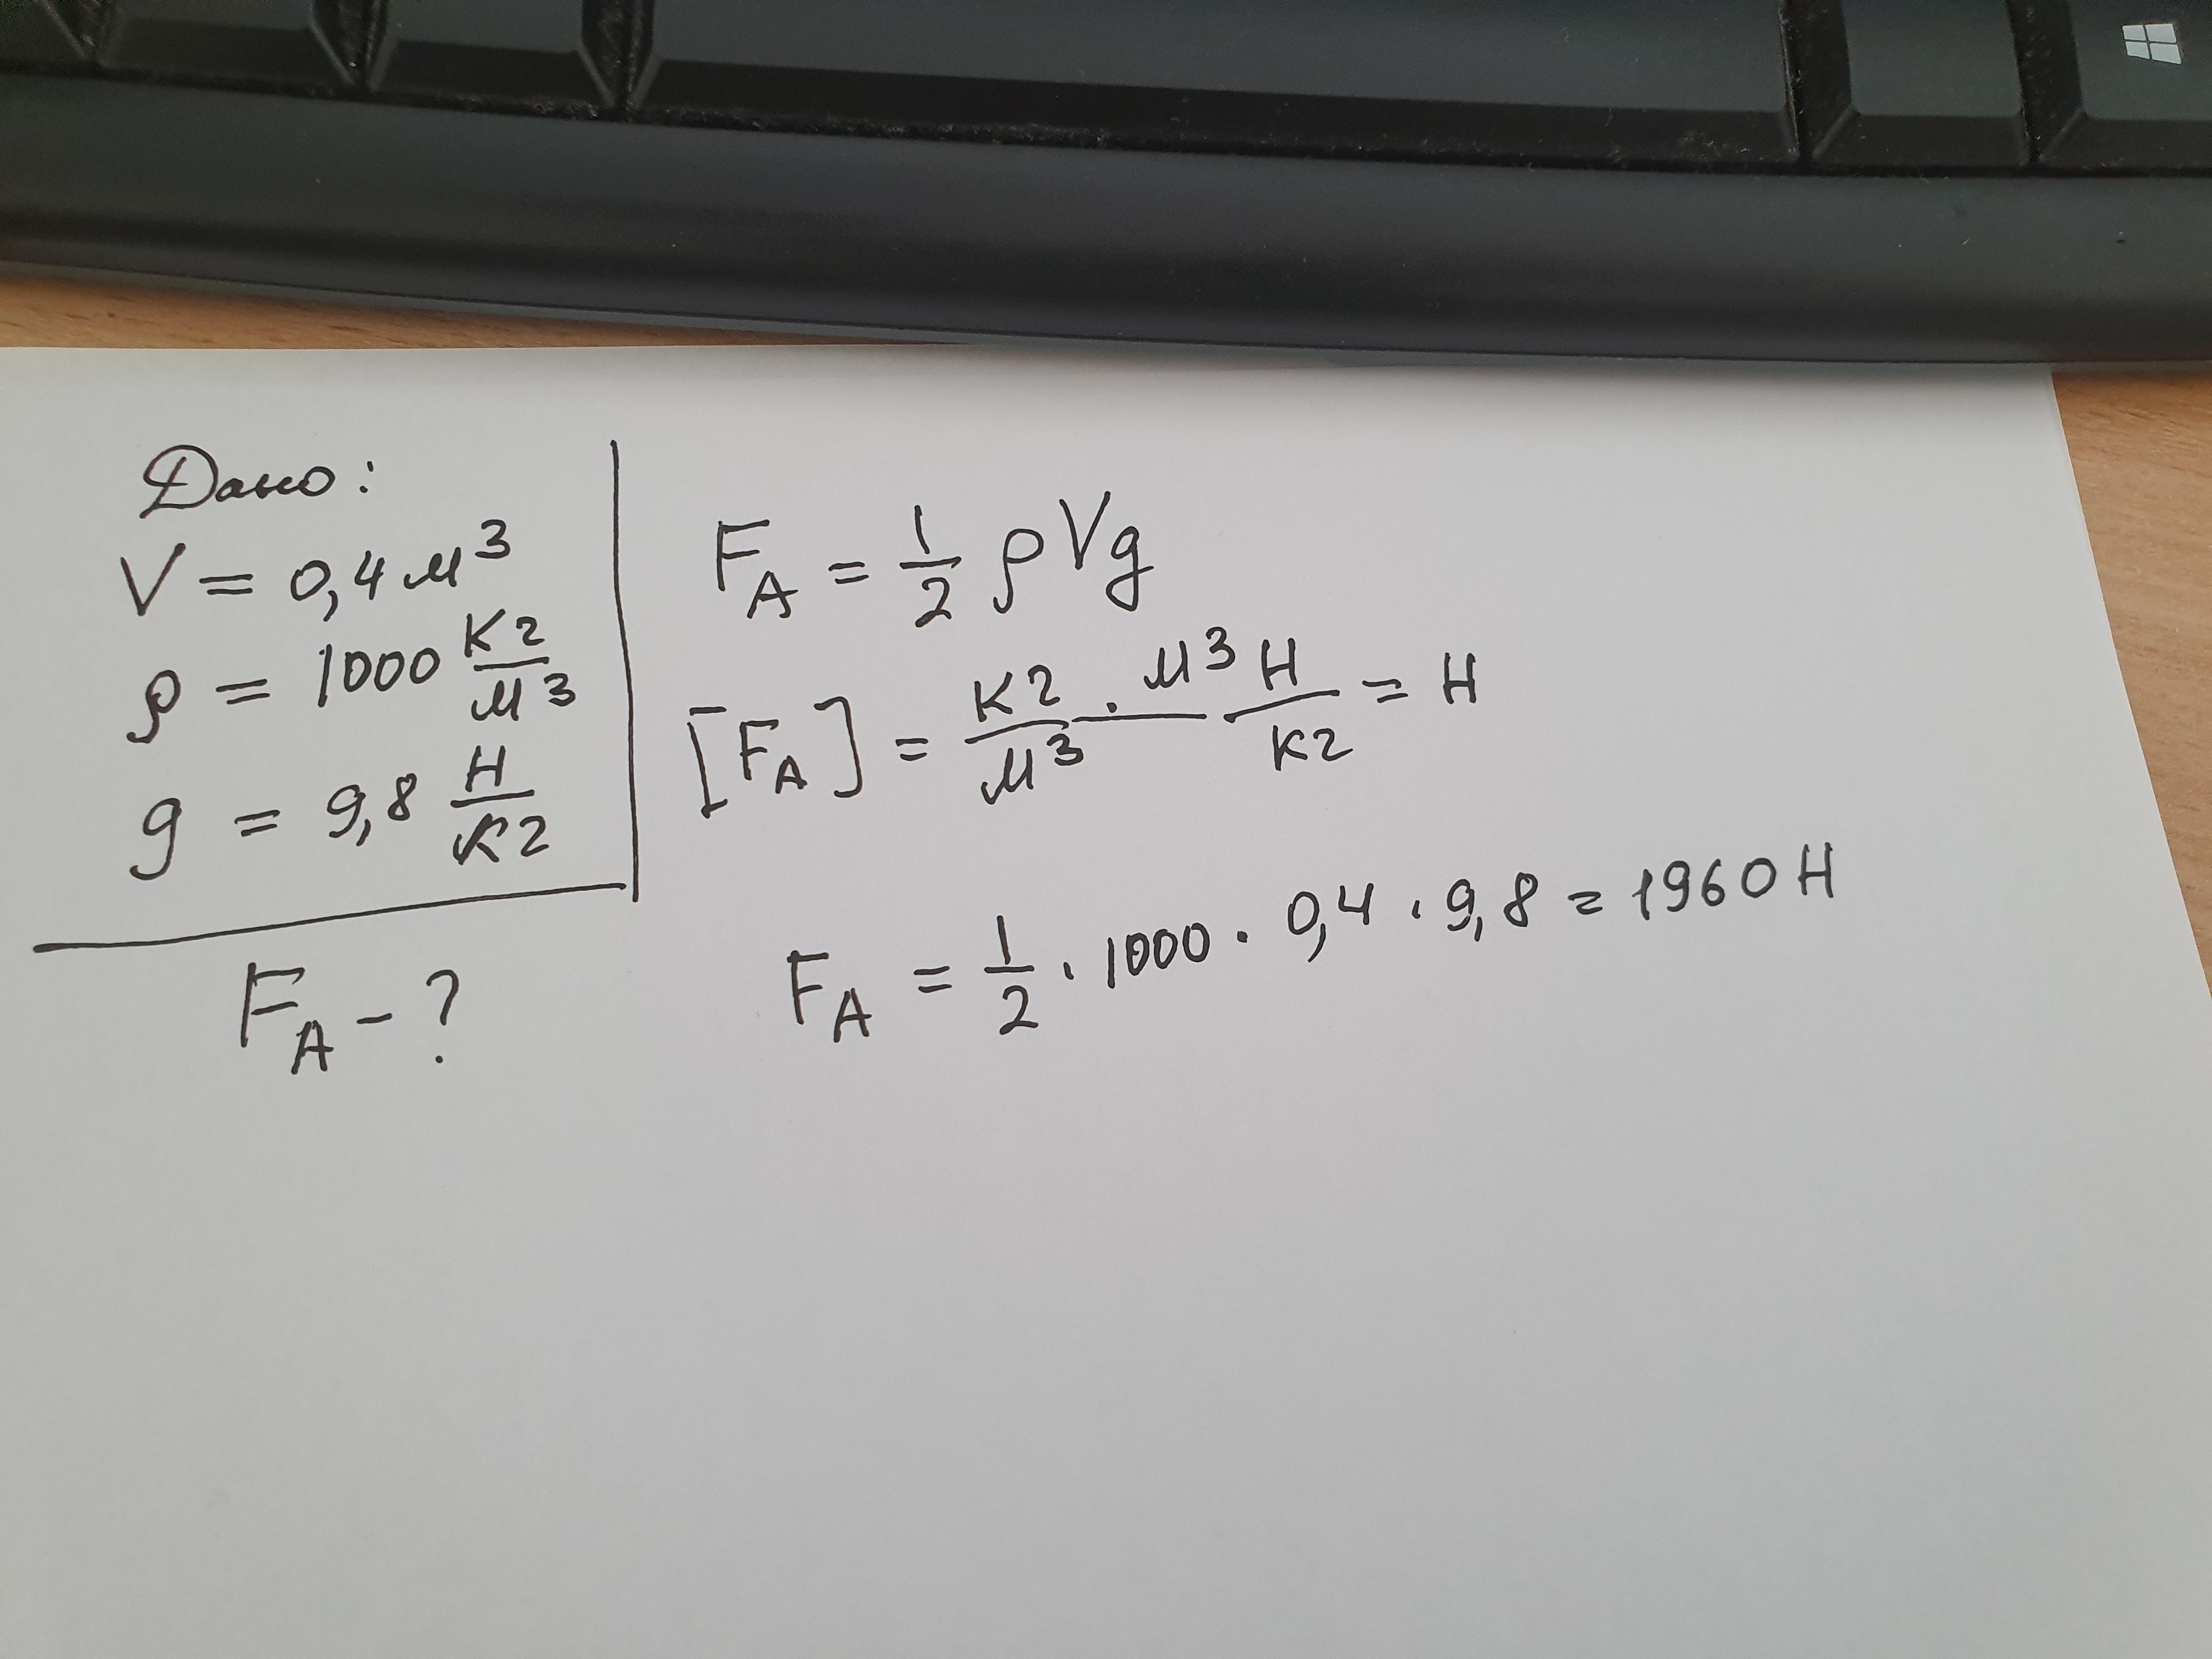 Дано:
V = 0,4 м³
ρ = 1000 кг/м³
g = 9,8 Н/кг
F_A - ?
F_A = 1/2 ρVg
[F_A] = кг/м³ · м³ Н/кг = Н
F_A = 1/2 · 1000 · 0,4 · 9,8 = 1960 Н